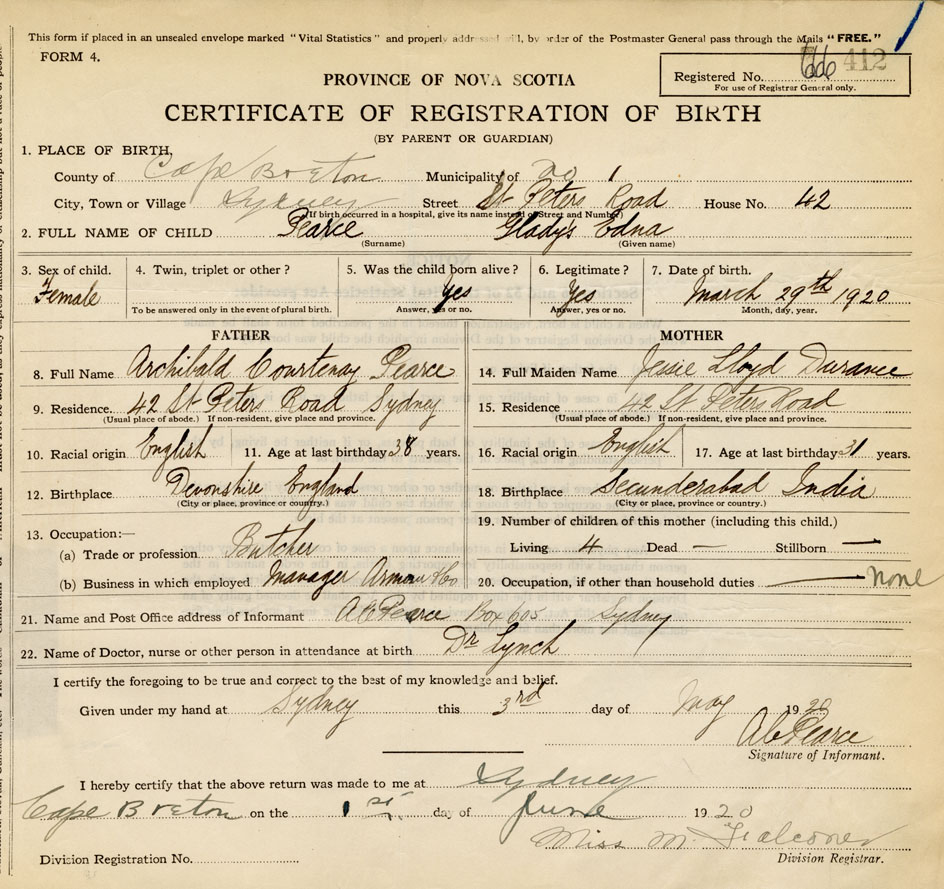 This form if placed in an unsealed envelope marked "Vital Statistics" and properly addressed will, by order of the Postmaster General pass through the Mails "FREE."
FORM 4.
PROVINCE OF NOVA SCOTIA
Registered No. 66 412
For use of Registrar General only.
CERTIFICATE OF REGISTRATION OF BIRTH
(BY PARENT OR GUARDIAN)
1. PLACE OF BIRTH,
County of Cape Breton Municipality of
City, Town or Village Sydney Street St Peters Road House No. 42
(If birth occurred in a hospital, give its name instead of Street and Number)
2. FULL NAME OF CHILD Pearce Gladys Edna
(Surname) (Given name)
3. Sex of child. 4. Twin, triplet or other? 5. Was the child born alive? 6. Legitimate? 7. Date of birth.
Female Yes Yes March 29th 1920
To be answered only in the event of plural birth. Answer, yes or no. Answer, yes or no. Month, day, year.
FATHER MOTHER
8. Full Name Archibald Courtenay Pearce 14. Full Maiden Name Jessie Lloyd Durance
9. Residence. 42 St Peters Road Sydney 15. Residence 42 St Peters Road
(Usual place of abode.) If non-resident, give place and province. (Usual place of abode.) If non-resident, give place and province.
10. Racial origin English 11. Age at last birthday 38 years. 16. Racial origin English 17. Age at last birthday 31 years.
12. Birthplace Devonshire England 18. Birthplace Secunderabad India
(City or place, province or country.) (City or place, province or country.)
13. Occupation:— 19. Number of children of this mother (including this child.)
(a) Trade or profession Butcher Living 4 Dead — Stillborn —
(b) Business in which employed Manager 20. Occupation, if other than household duties — none
21. Name and Post Office address of Informant A C Pearce Box 605 Sydney
22. Name of Doctor, nurse or other person in attendance at birth Dr Lynch
I certify the foregoing to be true and correct to the best of my knowledge and belief.
Given under my hand at Sydney this 3rd day of May 1920
A C Pearce
Signature of Informant.
I hereby certify that the above return was made to me at Sydney
Cape Breton on the 1st day of June 1920
Miss M. Falconer
Division Registration No. Division Registrar.